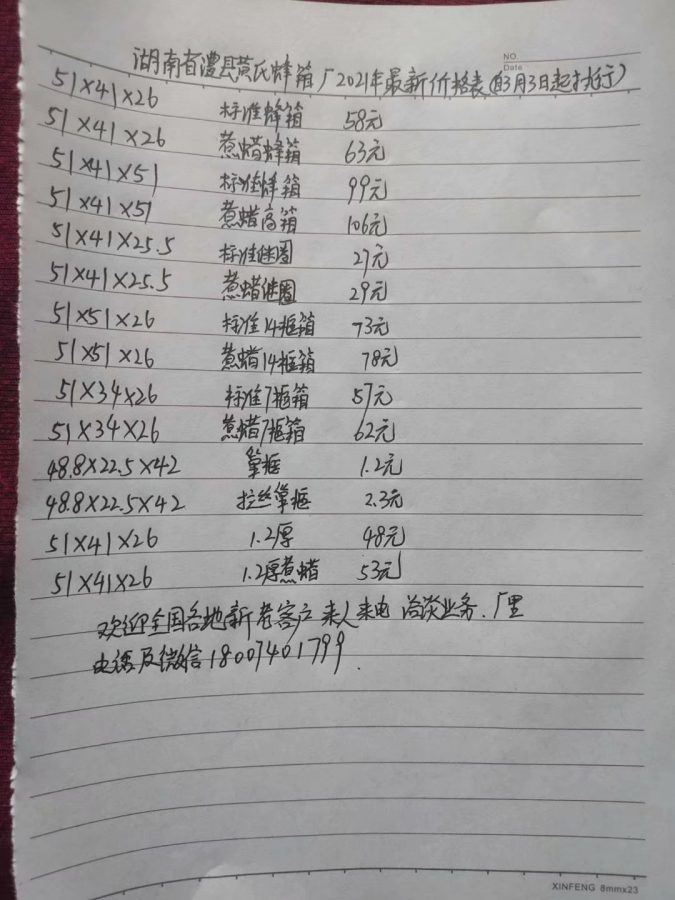 NO.
Date
湖南省澧县黄氏蜂箱厂2021年最新价格表(自3月3日起执行)
51×41×26 标准蜂箱 58元
51×41×26 煮蜡蜂箱 63元
51×41×51 标准蜂箱 99元
51×41×51 煮蜡高箱 106元
51×41×25.5 标准继圈 27元
51×41×25.5 煮蜡继圈 29元
51×51×26 标准14框箱 73元
51×51×26 煮蜡14框箱 78元
51×34×26 标准7框箱 57元
51×34×26 煮蜡7框箱 62元
48.8×22.5×42 巢框 1.2元
48.8×22.5×42 拉丝巢框 2.3元
51×41×26 1.2厚 48元
51×41×26 1.2厚煮蜡 53元
欢迎全国各地新老客户来人来电洽谈业务.厂里
电话及微信18007401799.
XINFENG 8mm×23